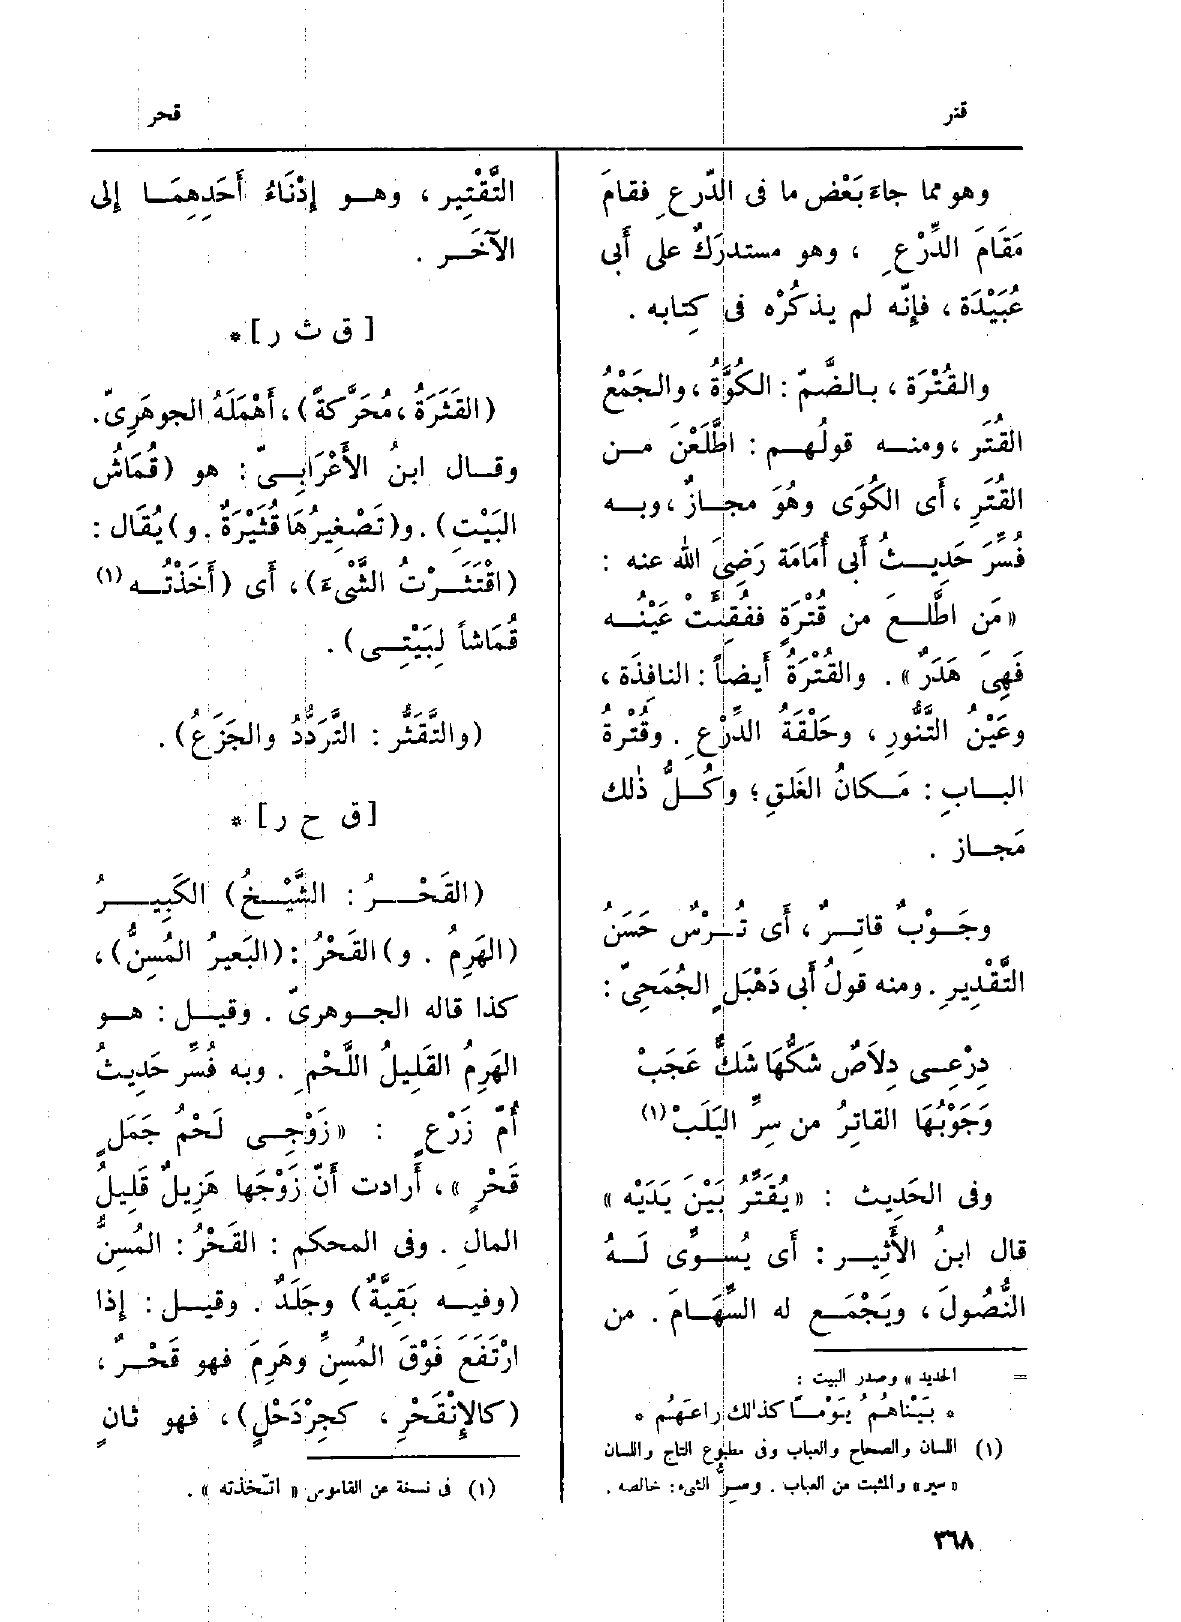 قتر
قحر
وهو مما جاءَ بَعْض ما فى الدِّرعِ فقامَ
مَقَامَ الدِّرْعِ ، وهو مستدرَكٌ على أَبى
عُبَيْدَة ، فإِنّه لم يذكُرْه فى كِتابه .
والقُتْرَة ، بالضَّمّ : الكُوَّةُ ، والجَمْعُ
القُتَر ، ومنه قولُهم : اطَّلَعْنَ من
القُتَرِ ، أَى الكُوَى وهُوَ مجازٌ ، وبه
فُسِّرَ حَدِيثُ أَبى أُمَامَة رَضِىَ الله عنه :
« مَن اطَّلَعَ من قُتْرَةٍ ففُقِئَتْ عَيْنُه
فَهِىَ هَدَرٌ » . والقُتْرَةُ أَيضاً : النافِذَة ،
وعَيْنُ التَّنُّورِ ، وحَلْقَةُ الدِّرْعِ . وقُتْرةُ
البابِ : مَكانُ الغَلقِ ؛ وكُلُّ ذٰلك
مَجاز .
وجَوْبٌ قاتِرٌ ، أَى تُرْسٌ حَسَنُ
التَّقْدِيرِ . ومنه قولُ أَبى دَهْبَلٍ الجُمَحِىّ :
دِرْعِى دِلَاصٌ شَكُّهَا شَكٌّ عَجَبْ
وَجَوْبُهَا القاتِرُ من سِرِّ اليَلَبْ (١)
وفى الحَدِيث : « يُقَتِّرُ بَيْنَ يَدَيْه »
قال ابنُ الأَثِير : أَى يُسوِّى لَهُ
النُّصُولَ ، ويَجْمَع له السِّهَامَ . من
= الحديد » وصدر البيت :
* بَيْنَاهُمُ يَوْمًا كذالك راعَهُم *
(١) اللسان والصحاح والعباب وفى مطبوع التاج واللسان
« سير » والمثبت من العباب . وسِرُّ الشىء : خالصه .
التَّقْتِير ، وهو إِدْنَاءُ أَحَدِهِمَا إِلى
الآخَر .
[ ق ث ر ] *
(القَثَرَةُ ، مُحَرَّكةً) ، أَهْمَلَهُ الجوهَرِىّ .
وقال ابنُ الأَعْرَابِىّ : هو (قُمَاشُ
البَيْتِ) . و(تَصْغِيرُهَا قُثَيْرَةٌ . و) يُقَال :
(اقْتَثَرْتُ الشَّىْءَ) ، أَى (أَخَذْتُه (١)
قُمَاشاً لِبَيْتِى) .
(والتَّقَثُّر : التَّرَدُّدُ والجَزَعُ) .
[ ق ح ر ] *
(القَحْرُ : الشَّيْخُ) الكَبِيرُ
(الهَرِمُ . و) القَحْرُ : (البَعيرُ المُسِنُّ) ،
كذا قاله الجوهرىّ . وقيل : هو
الهَرِمُ القَلِيلُ اللَّحْمِ . وبه فُسِّر حَدِيثُ
أُمّ زَرْعٍ : « زَوْجِى لَحْمُ جَمَلٍ
قَحْرٍ » ، أَرادت أَنّ زَوْجَها هَزِيلٌ قَلِيلُ
المالِ . وفى المحكم : القَحْرُ : المُسِنُّ
(وفيه بَقِيَّةٌ) وجَلَدٌ . وقيل : إِذا
ارْتَفَعَ فَوْقَ المُسِنِّ وهَرِمَ فهو قَحْرٌ ،
(كالإِنْقَحْرِ ، كجِرْدَحْلٍ) ، فهو ثانٍ
(١) فى نسخة من القاموس « اتّخذته » .
٣٦٨